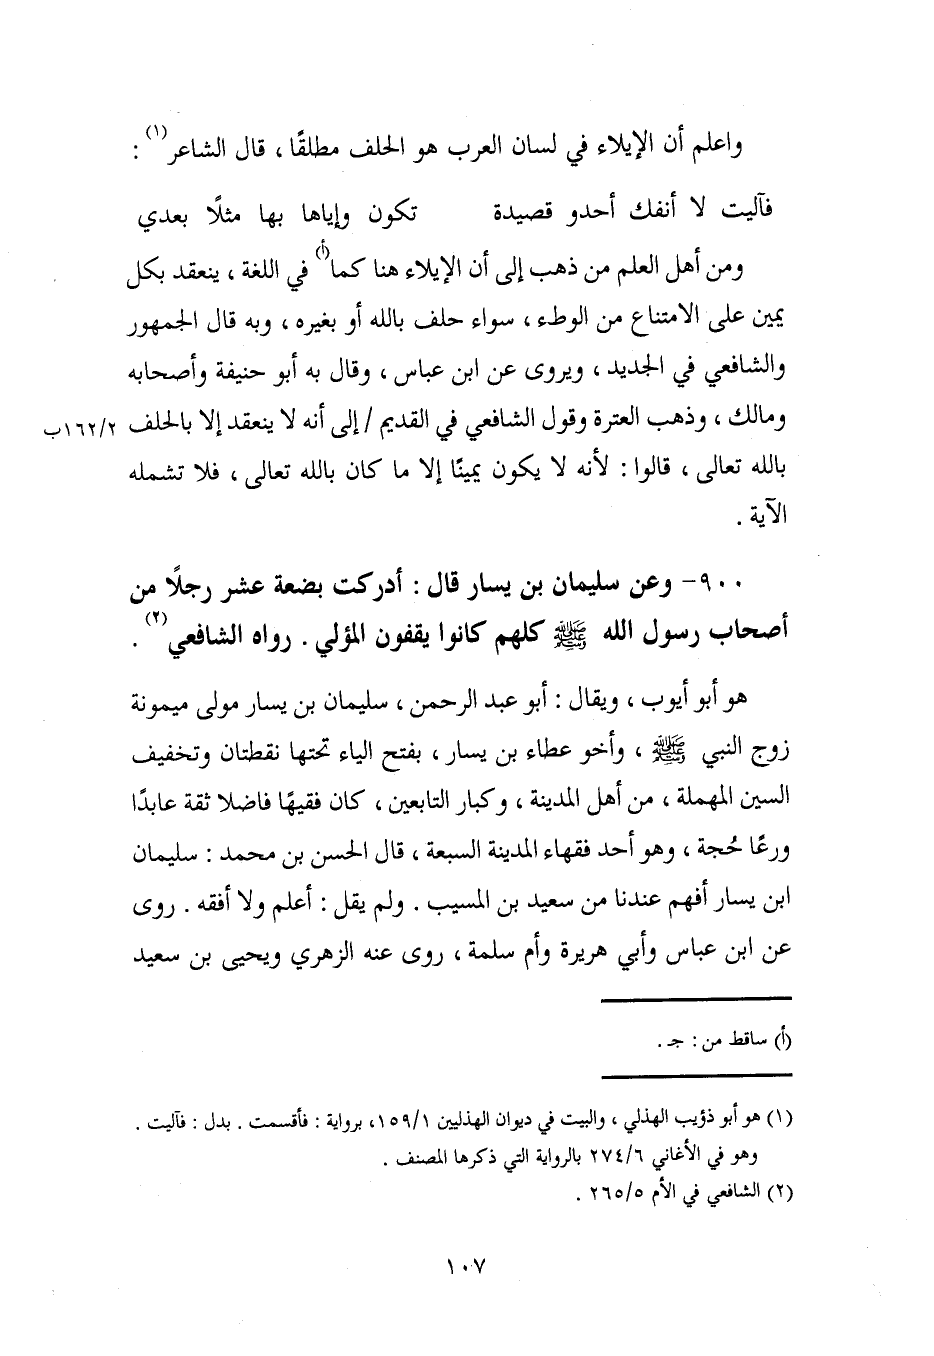 واعلم أن الإيلاء في لسان العرب هو الحلف مطلقًا ، قال الشاعر(١) :
فآليت لا أنفك أحدو قصيدة تكون وإياها بها مثلًا بعدي
ومن أهل العلم من ذهب إلى أن الإيلاء هنا كما(أ) في اللغة ، ينعقد بكل
يمين على الامتناع من الوطء ، سواء حلف بالله أو بغيره ، وبه قال الجمهور
والشافعي في الجديد ، ويروى عن ابن عباس ، وقال به أبو حنيفة وأصحابه
ومالك ، وذهب العترة وقول الشافعي في القديم / إلى أنه لا ينعقد إلا بالحلف ١٦٢/٢ب
بالله تعالى ، قالوا : لأنه لا يكون يمينًا إلا ما كان بالله تعالى ، فلا تشمله
الآية .
٩٠٠- وعن سليمان بن يسار قال : أدركت بضعة عشر رجلًا من
أصحاب رسول الله ﷺ كلهم كانوا يقفون المؤلي . رواه الشافعي(٢) .
هو أبو أيوب ، ويقال : أبو عبد الرحمن ، سليمان بن يسار مولى ميمونة
زوج النبي ﷺ ، وأخو عطاء بن يسار ، بفتح الياء تحتها نقطتان وتخفيف
السين المهملة ، من أهل المدينة ، وكبار التابعين ، كان فقيهًا فاضلا ثقة عابدًا
ورعًا حُجة ، وهو أحد فقهاء المدينة السبعة ، قال الحسن بن محمد : سليمان
ابن يسار أفهم عندنا من سعيد بن المسيب . ولم يقل : أعلم ولا أفقه . روى
عن ابن عباس وأبي هريرة وأم سلمة ، روى عنه الزهري ويحيى بن سعيد
(أ) ساقط من : جـ .
(١) هو أبو ذؤيب الهذلي ، والبيت في ديوان الهذليين ١٥٩/١، برواية : فأقسمت . بدل : فآليت .
وهو في الأغاني ٢٧٤/٦ بالرواية التي ذكرها المصنف .
(٢) الشافعي في الأم ٢٦٥/٥ .
١٠٧